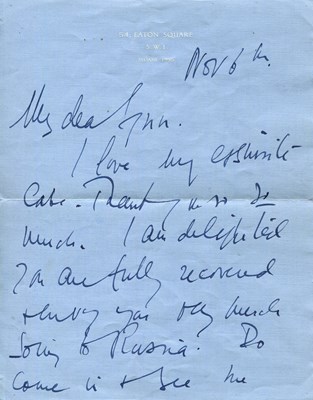 EATON SQUARE
S.W.1
Nov 6th.
My dear Lynn.
I love my exquisite
Cake. Thank you so so
much. I am delighted
you are fully recovered
very much
going to Russia. Do
come in & see me